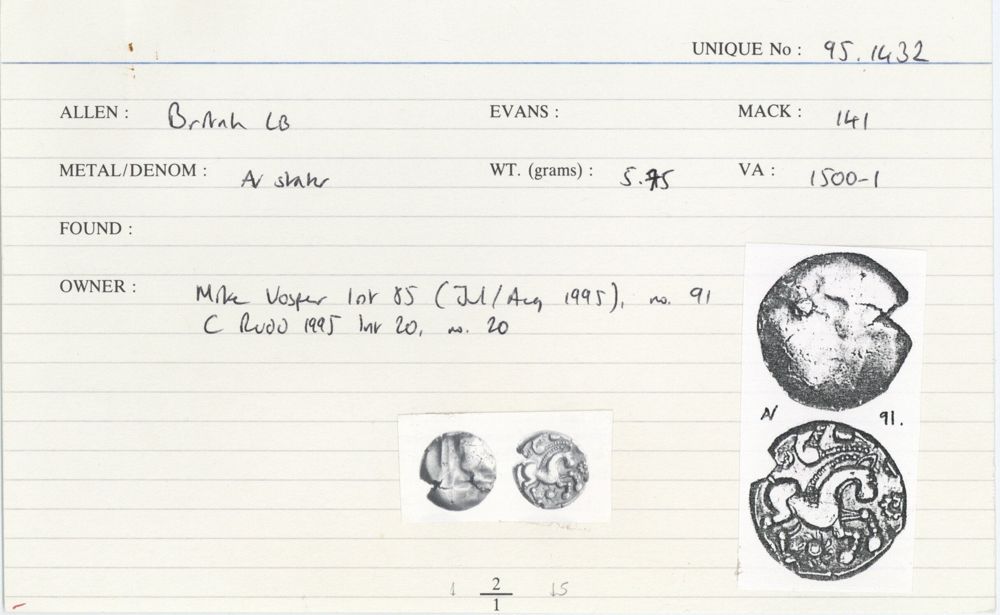 UNIQUE No : 95.1432
ALLEN : British LB EVANS : MACK : 141
METAL/DENOM : AV stater WT. (grams) : 5.75 VA : 1500-1
FOUND :
OWNER : Mike Vosper list 85 (Jul/Aug 1995), no. 91
C Rudd 1995 list 20, no. 20
AV 91.
2
1 15
1